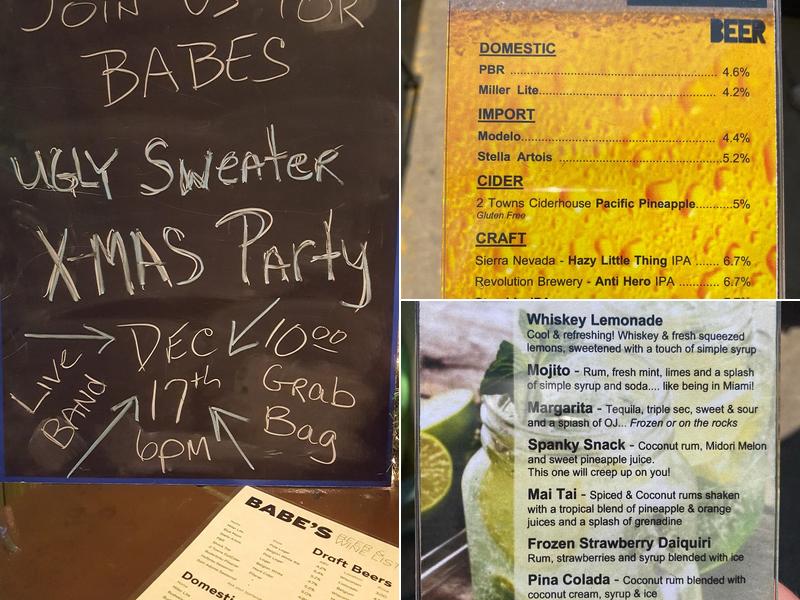 JOIN US FOR
BABES
UGLY Sweater
X-MAS Party
DEC
17th
6pm
LIVE
BAND
10 00
Grab
Bag
BABE'S
BEER &
WINE LIST
Draft Beers
Domestic
BEER
DOMESTIC
PBR ........ 4.6%
Miller Lite........ 4.2%
IMPORT
Modelo........ 4.4%
Stella Artois ........5.2%
CIDER
2 Towns Ciderhouse Pacific Pineapple...........5%
Gluten Free
CRAFT
Sierra Nevada - Hazy Little Thing IPA ....... 6.7%
Revolution Brewery - Anti Hero IPA ....... 6.7%
Whiskey Lemonade
Cool & refreshing! Whiskey & fresh squeezed
lemons, sweetened with a touch of simple syrup
Mojito - Rum, fresh mint, limes and a splash
of simple syrup and soda.... like being in Miami!
Margarita - Tequila, triple sec, sweet & sour
and a splash of OJ... Frozen or on the rocks
Spanky Snack - Coconut rum, Midori Melon
and sweet pineapple juice.
This one will creep up on you!
Mai Tai - Spiced & Coconut rums shaken
with a tropical blend of pineapple & orange
juices and a splash of grenadine
Frozen Strawberry Daiquiri
Rum, strawberries and syrup blended with ice
Pina Colada - Coconut rum blended with
coconut cream, syrup & ice